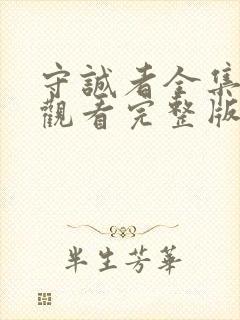 守誠者全集
觀看完整版
半生芳華